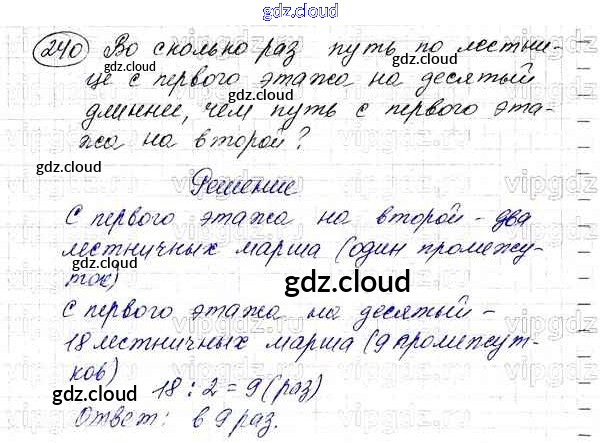 gdz.cloud
240 Во сколько раз путь по лестни-
це с первого этажа на десятый
длиннее, чем путь с первого эта-
жа на второй?
Решение
С первого этажа на второй - два
лестничных марша (один промежу-
ток)
С первого этажа на десятый -
18 лестничных марша (9 промежут-
ков)
18 : 2 = 9 (раз)
Ответ: в 9 раз.
gdz.cloud
gdz.cloud
gdz.cloud
gdz.cloud
gdz.cloud
gdz.cloud
gdz.cloud
vipgdz
vipgdz
vipgdz